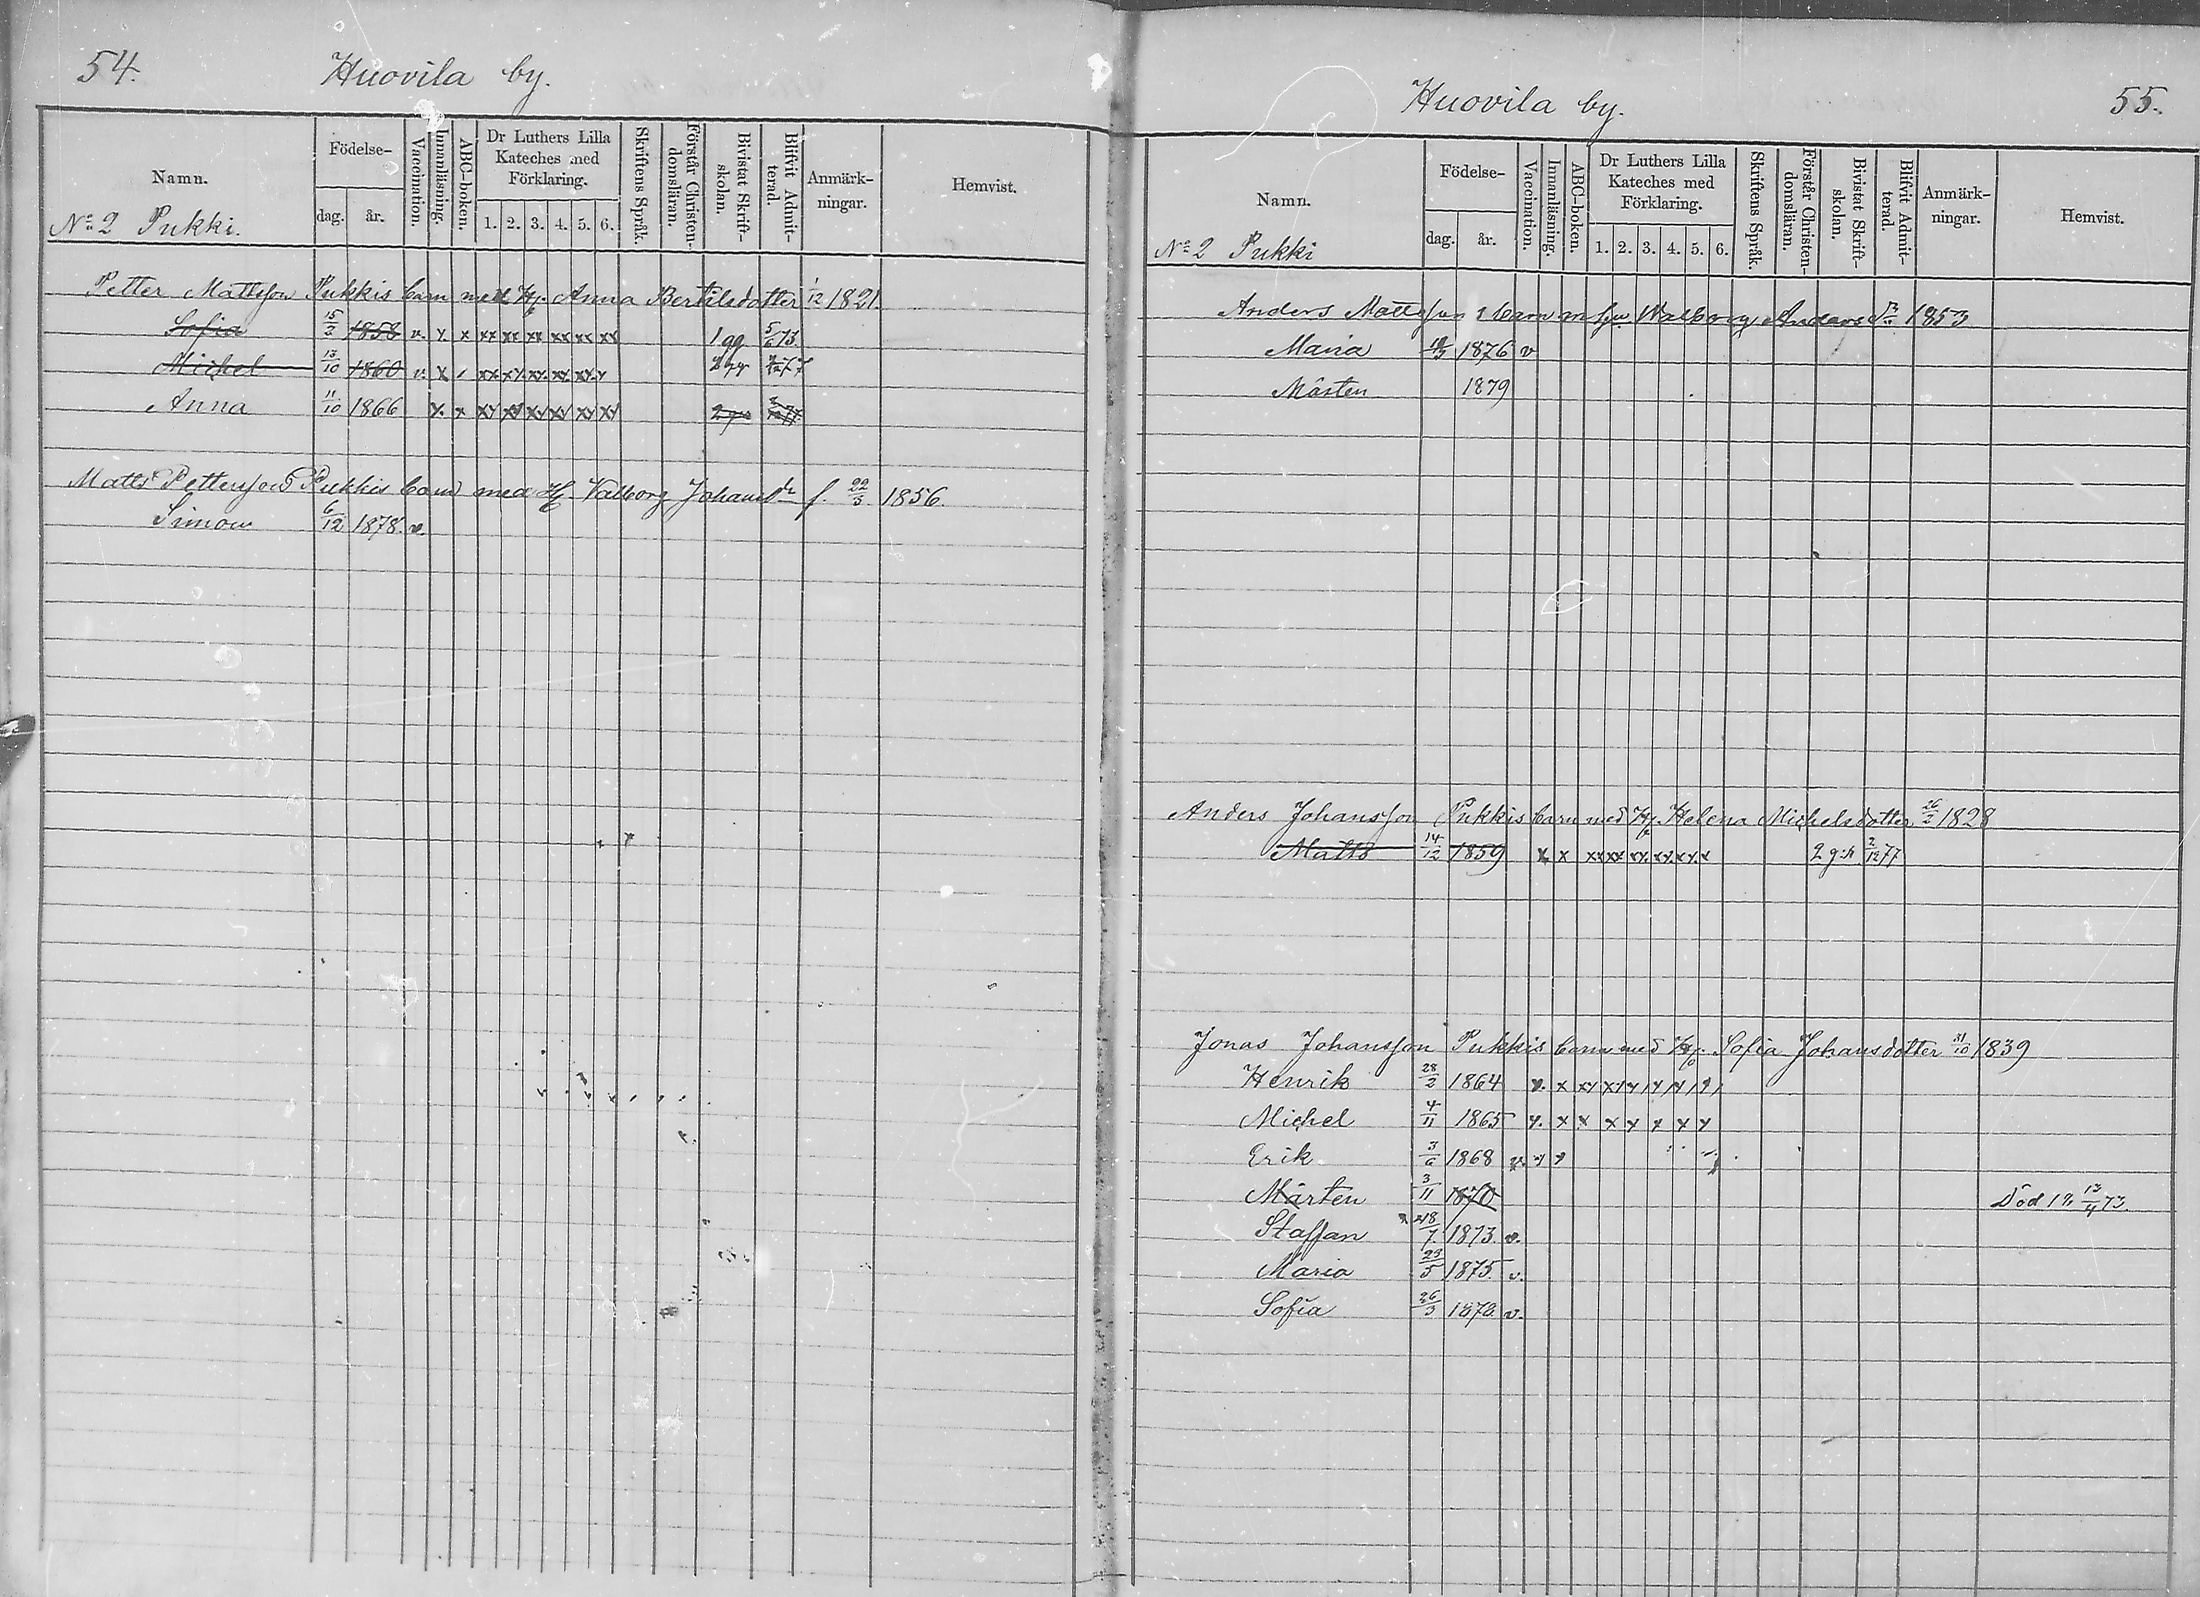 54. Huovila by.
Namn. Födelse- Vaccination. Innanläsning. ABC-boken. Dr Luthers Lilla Kateches med Förklaring. Skriftens Språk. Förstår Christendomsläran. Bivistat Skriftskolan. Blifvit Admitterad. Anmärkningar. Hemvist.
dag. år. 1. 2. 3. 4. 5. 6.
No 2 Pukki.
Petter Mattsson Pukkis barn med H. Anna Bertilsdotter 1/12 1821
Sofia 15/2 1858 v. x x xx xx xx xx xx xx 1 gg 5/6 73.
Michel 13/10 1860 v. x
Anna 11/10 1866 x x xx xx xx xx xx xx
Matts Pettersons Pukkis barn med H. Valborg Johansdr f. 22/3 1856.
Simon 6/12 1878. v.
Huovila by. 55.
Namn. Födelse- Vaccination. Innanläsning. ABC-boken. Dr Luthers Lilla Kateches med Förklaring. Skriftens Språk. Förstår Christendomsläran. Bivistat Skriftskolan. Blifvit Admitterad. Anmärkningar. Hemvist.
dag. år. 1. 2. 3. 4. 5. 6.
No 2 Pukki
Anders Mattsson barn m hu Walborg Anders 1853
Maria 1876 v
Mårten 1879
Anders Johansson Pukkis barn med H. Helena Michelsdotter 26/2 1828
Matts 14/12 1859 x x xx xx xx xx xx x 2 g:r 2/12 77
Jonas Johansson Pukkis barn med H. Sofia Johansdotter 31/10 1839
Henrik 28/2 1864 v. x
Michel 4/11 1865 x x x x x x x x
Erik 3/6 1868 v.
Mårten 3/11 1870 Död 13/4 73.
Staffan 18/7 1873 v.
Maria 23/5 1875 v.
Sofia 26/3 1878 v.